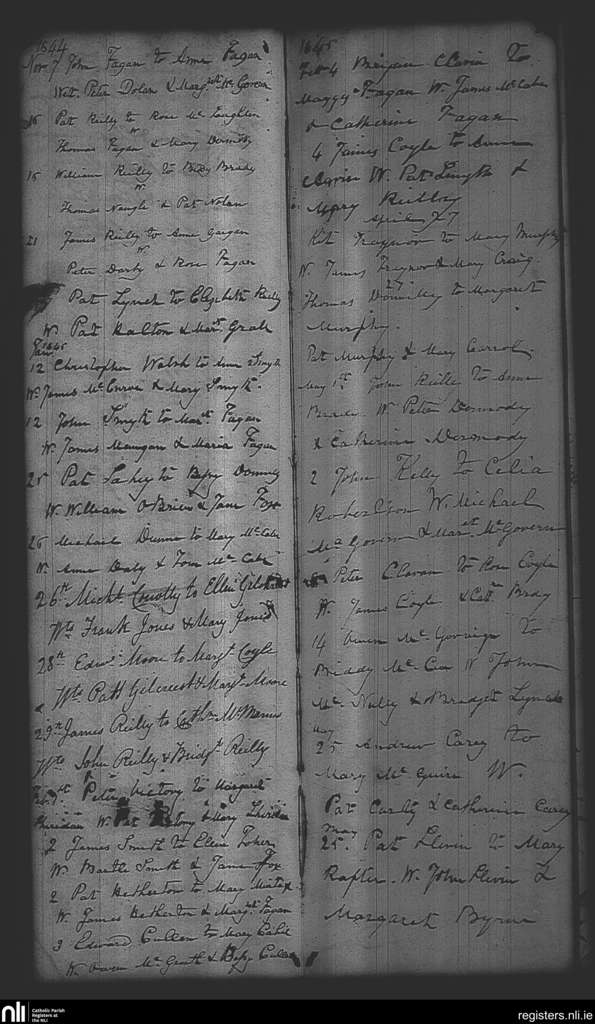 1844
Nov 7 John Fagan to Anne Fagan
Wit. Peter Dolan & Margret Mc Govern
Pat Reilly to Rose Mc Laughlin
W
Thomas Fagan & Mary
15 William Reilly to Bidy Brady
W
Thomas Naugle & Pat Nolan
21 James Reilly to Anne Gargan
W
Peter Darby & Rose Fagan
Pat Lynch to Elizabeth Reilly
W Pat Halton & Mart. Grath
Jany. 1845
12 Christopher Walsh to Anne Smyth
W. James Mc Enroe & Mary Smyth.
12 John Smyth to Mart. Fagan
W. James Mangan & Maria Fagan
Pat to Bessy
W. William O Brien & Jane Fox
26 Michael Dunne to Mary Mc Cabe
W. Anne Daly & Tom Mc Cabe
26th. Michl. to Ellen
Wts Frank Jones & Mary Jones
28th. Edwd. Moore to Margt. Coyle
Wts Patt Gilcreest & Margt. Moore
29th James Reilly to Cathn. McManus
Wts John Reilly & Bridgt. Reilly
Peter Victory to Margaret
Sheridan W. Pat Victory & Mary Sheridan
2 James Smith to Ellen
W. Bartle Smith & Jane Fox
2 Pat Hetherton to Mary
W. James Hetherton & Margt. Fagan
3 Edward Cullen to Mary Cahil
W. Owen Mc Grath & Bessy Cullen
1845
Feb 4 Bryan Clavin To
Maggy Fagan W. James Mc Cabe
& Catherine Fagan
4 James Coyle to Anne
W. Pat Smyth &
Mary Reilly
April 27
Kit Traynor to Mary Murphy
W. James Traynor & Mary Craig.
27
Thomas Donnelly to Margaret
Murphy.
Pat Murphy & Mary Carrol
May 1st. John Reilly To Anne
Brady. W Peter Dermody
& Catherine Dermody
2 John Kelly To Celia
Robertson W. Michael
Mc Govern & Mart. Mc Govern
Peter Clavan to Rose Coyle
W. James Coyle & Cath. Brady
14 Owen Mc To
Briddy Mc W John
Mc Nally & Bridget Lynch
May
25 Andrew Carey to
Mary Mc Guire W.
Pat & Catherine Carey
May
25. Pat Slevin to Mary
Rafter. W. John Slevin &
Margaret Byrne
nli Catholic Parish
Registers at
the NLI
registers.nli.ie